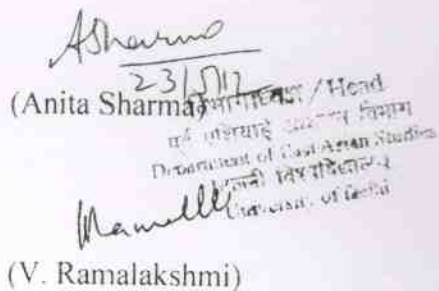 ASharma
23/5/17
(Anita Sharma)
विभागाध्यक्ष / Head
पूर्व एशियाई अध्ययन विभाग
Department of East Asian Studies
दिल्ली विश्वविद्यालय
University of Delhi
(V. Ramalakshmi)